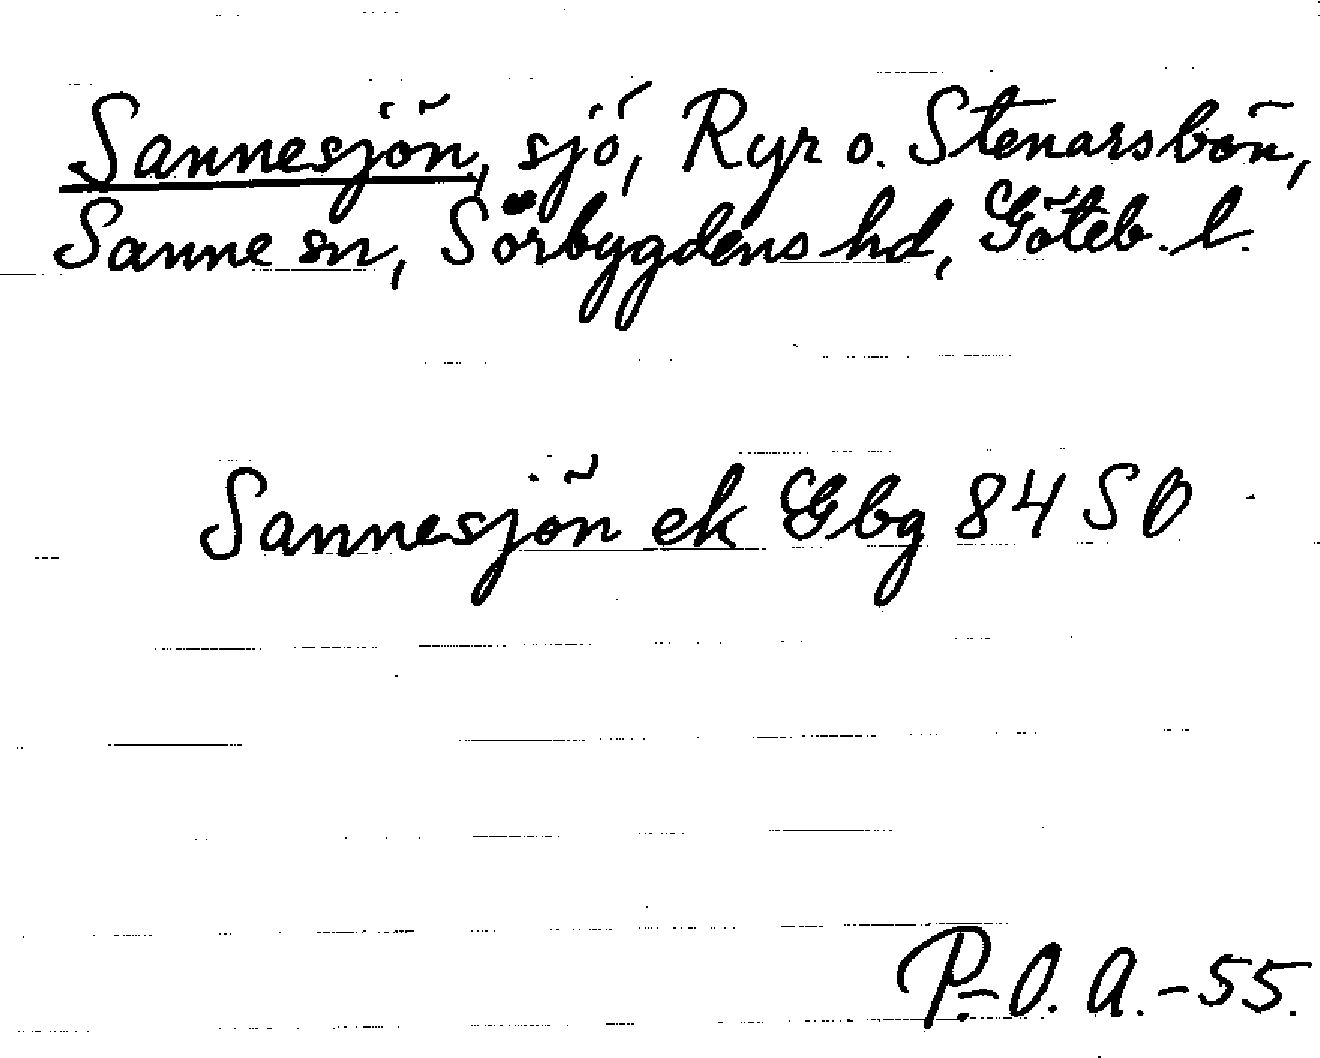 Sannesjön, sjö, Ryr o. Stenarsbön,
Sanne sn, Sörbygdens hd, Göteb. l.
Sannesjön ek Gbg 84 SO
P.-O. A.-55.